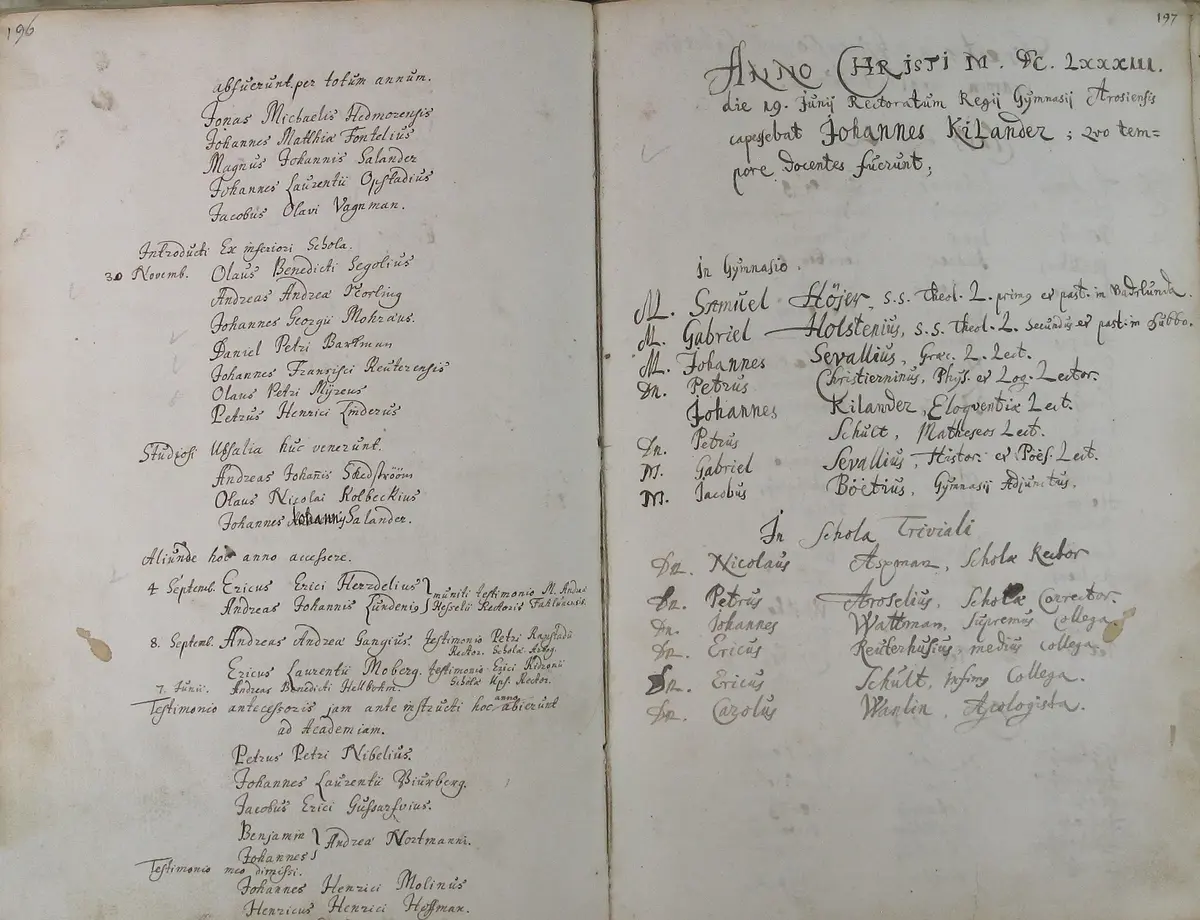 196
absuerunt per totum annum.
Jonas Michaelis Hedmorensis
Johannes Matthiæ Fontelius
Magnus Johannis Salander
Johannes Laurentii Opstadius
Jacobus Olavi Vagnman.
Introducti Ex inferiori Schola.
30 Novemb. Olaus Benedicti Segolius
Andreas Andreæ Norling
Johannes Georgii Mohræus.
Daniel Petri Barkman
Johannes Francisci Reuterensis
Olaus Petri Myreus
Petrus Henrici Linderus
Studiosi Upsalia huc venerunt.
Andreas Johannis Skedströöm
Olaus Nicolai Kolbeckius
Johannes Johannis Salander.
Aliunde hoc anno accessere.
4 Septemb. Ericus Erici Herrdelius
Andreas Johannis Lundenis
muniti testimonio M. Andreæ
Hesselii Rectoris Fahlunensis.
8. Septemb. Andreas Andreæ Gangius. testimonio Petri
Rector. Scholæ
Ericus Laurentii Moberg. testimonio Erici
Scholæ Ups. Rector.
7. Junii. Andreas Benedicti Hellbohm.
Testimonio antecessoris jam ante instructi hoc anno abierunt
ad Academiam.
Petrus Petri Nibelius.
Johannes Laurentii Biurberg.
Jacobus Erici Gussarfvius.
Benjamin
Johannes
Andreæ Nortmanni.
Testimonio meo dimissi.
Johannes Henrici Molinus
Henricus Henrici Hoffman.
197
ANNO CHRISTI M. DC. LXXXIII.
die 19. Junij Rectoratum Regij Gymnasij Arosiensis
capessebat Johannes Kilander ; qvo tem=
pore Docentes fuerunt;
In Gymnasio.
M. Samuel Höjer, S.S. Theol. L. prim9 et past. in Badelunda.
M. Gabriel Holstenius, S.S. Theol. L. Secundus et past. in Lubbo.
M. Johannes Sevallius, Græc. L. Lect.
Dn. Petrus Christierninus, Phys. et Log. Lector.
Johannes Kilander, Eloqventiæ Lect.
Dn. Petrus Schult, Matheseos Lect.
M. Gabriel Sevallius, Histor. et Poës. Lect.
M. Jacobus Boëtius, Gymnasij Adjunctus.
In Schola Triviali
Dn. Nicolaus Aspman, Scholæ Rector
Dn. Petrus Aroselius, Scholæ Conrector.
Dn. Johannes Wattman, Supremus Collega.
Dn. Ericus Reuterhusius, medius Collega.
Dn. Ericus Schult, Infim9 Collega.
Dn. Carolus Warlin, Apologista.